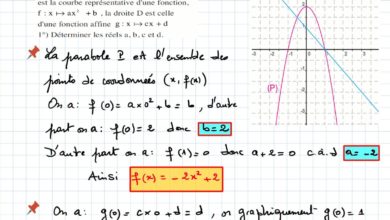 est la courbe représentative d'une fonction.
f : x ↦ ax² + b , la droite D est celle
d'une fonction affine g : x ↦ cx + d
1°) Déterminer les réels a, b, c et d.
(P)
La parabole P est l'ensemble des
points de coordonnées (x, f(x))
On a : f(0) = a×0² + b = b , d'autre
part on a : f(0) = 2 donc b = 2
D'autre part on a : f(1) = 0 donc a + 2 = 0 c.à.d a = -2
Ainsi f(x) = -2x² + 2
On a : g(0) = c×0 + d = d , or graphiquement g(0) = 1